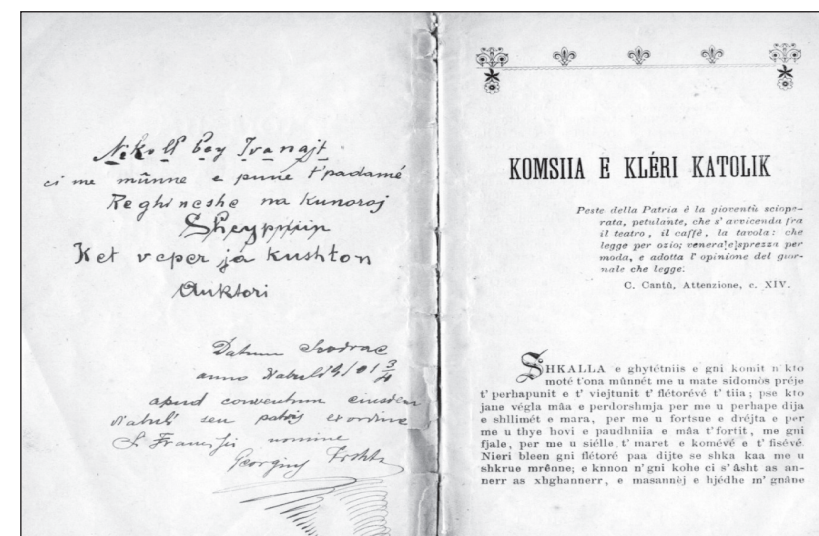 Nikoll bey Ivanajt
ci me mûnne e pune t'padamé
Reghineshe na Kunoroj
Shcypniin
Ket veper ja kushton
Auktori
Datum Scodrae
anno
apud conventum eiusdem
seu patris ex ordine
S. Francisci nomine
Georgius
KOMSIIA E KLÉRI KATOLIK
Peste della Patria è la gioventù sciope-
rata, petulante, che s' avvicenda fra
il teatro, il caffè, la tavola: che
legge per ozio; venera e sprezza per
moda, e adotta l' opinione del gior-
nale che legge.
C. Cantù, Attenzione, c. XIV.
SHKALLA e ghytétniis e gni komit n' kto
moté t'ona mûnnét me u mate sidomòs préje
t' perhapunit e t' viejtunit t' flétorévé t' tiia; pse kto
jane végla mâa e perdorshmja per me u perhape dija
e shllimét e mara, per me u fortsue e dréjta e per
me u thye hovi e paudhniia e mâa t'fortit, me gni
fjale, per me u siélle t' maret e komévé e t' fisévé.
Nieri bleen gni flétoré paa dijte se shka kaa me u
shkrue mrênne; e knnon n' gni kohe ci s' âsht as an-
nerr as xhghannerr, e masannèj e hjédhe m' gnâne